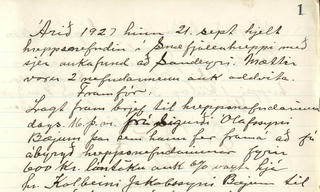 1
Árið 1927 hinn 21. sept hjelt
hreppsnefndin í Snæfjallahreppi með
sjer aukafund að Sandeyri. Mættir
voru 2 nefndarmenn auk oddvita.
Framför:
Lagt fram brjef til hreppsnefndarinnar
dags. 16. þ. m. frá Sigurði Ólafssyni
Bæjum þar sem hann fer framá að fá
ábyrgð hreppsnefndarinnar fyrir
600 kr. lántöku auk 6% vaxta hjá
hr. Kolbeini Jakobssyni Bæjum til